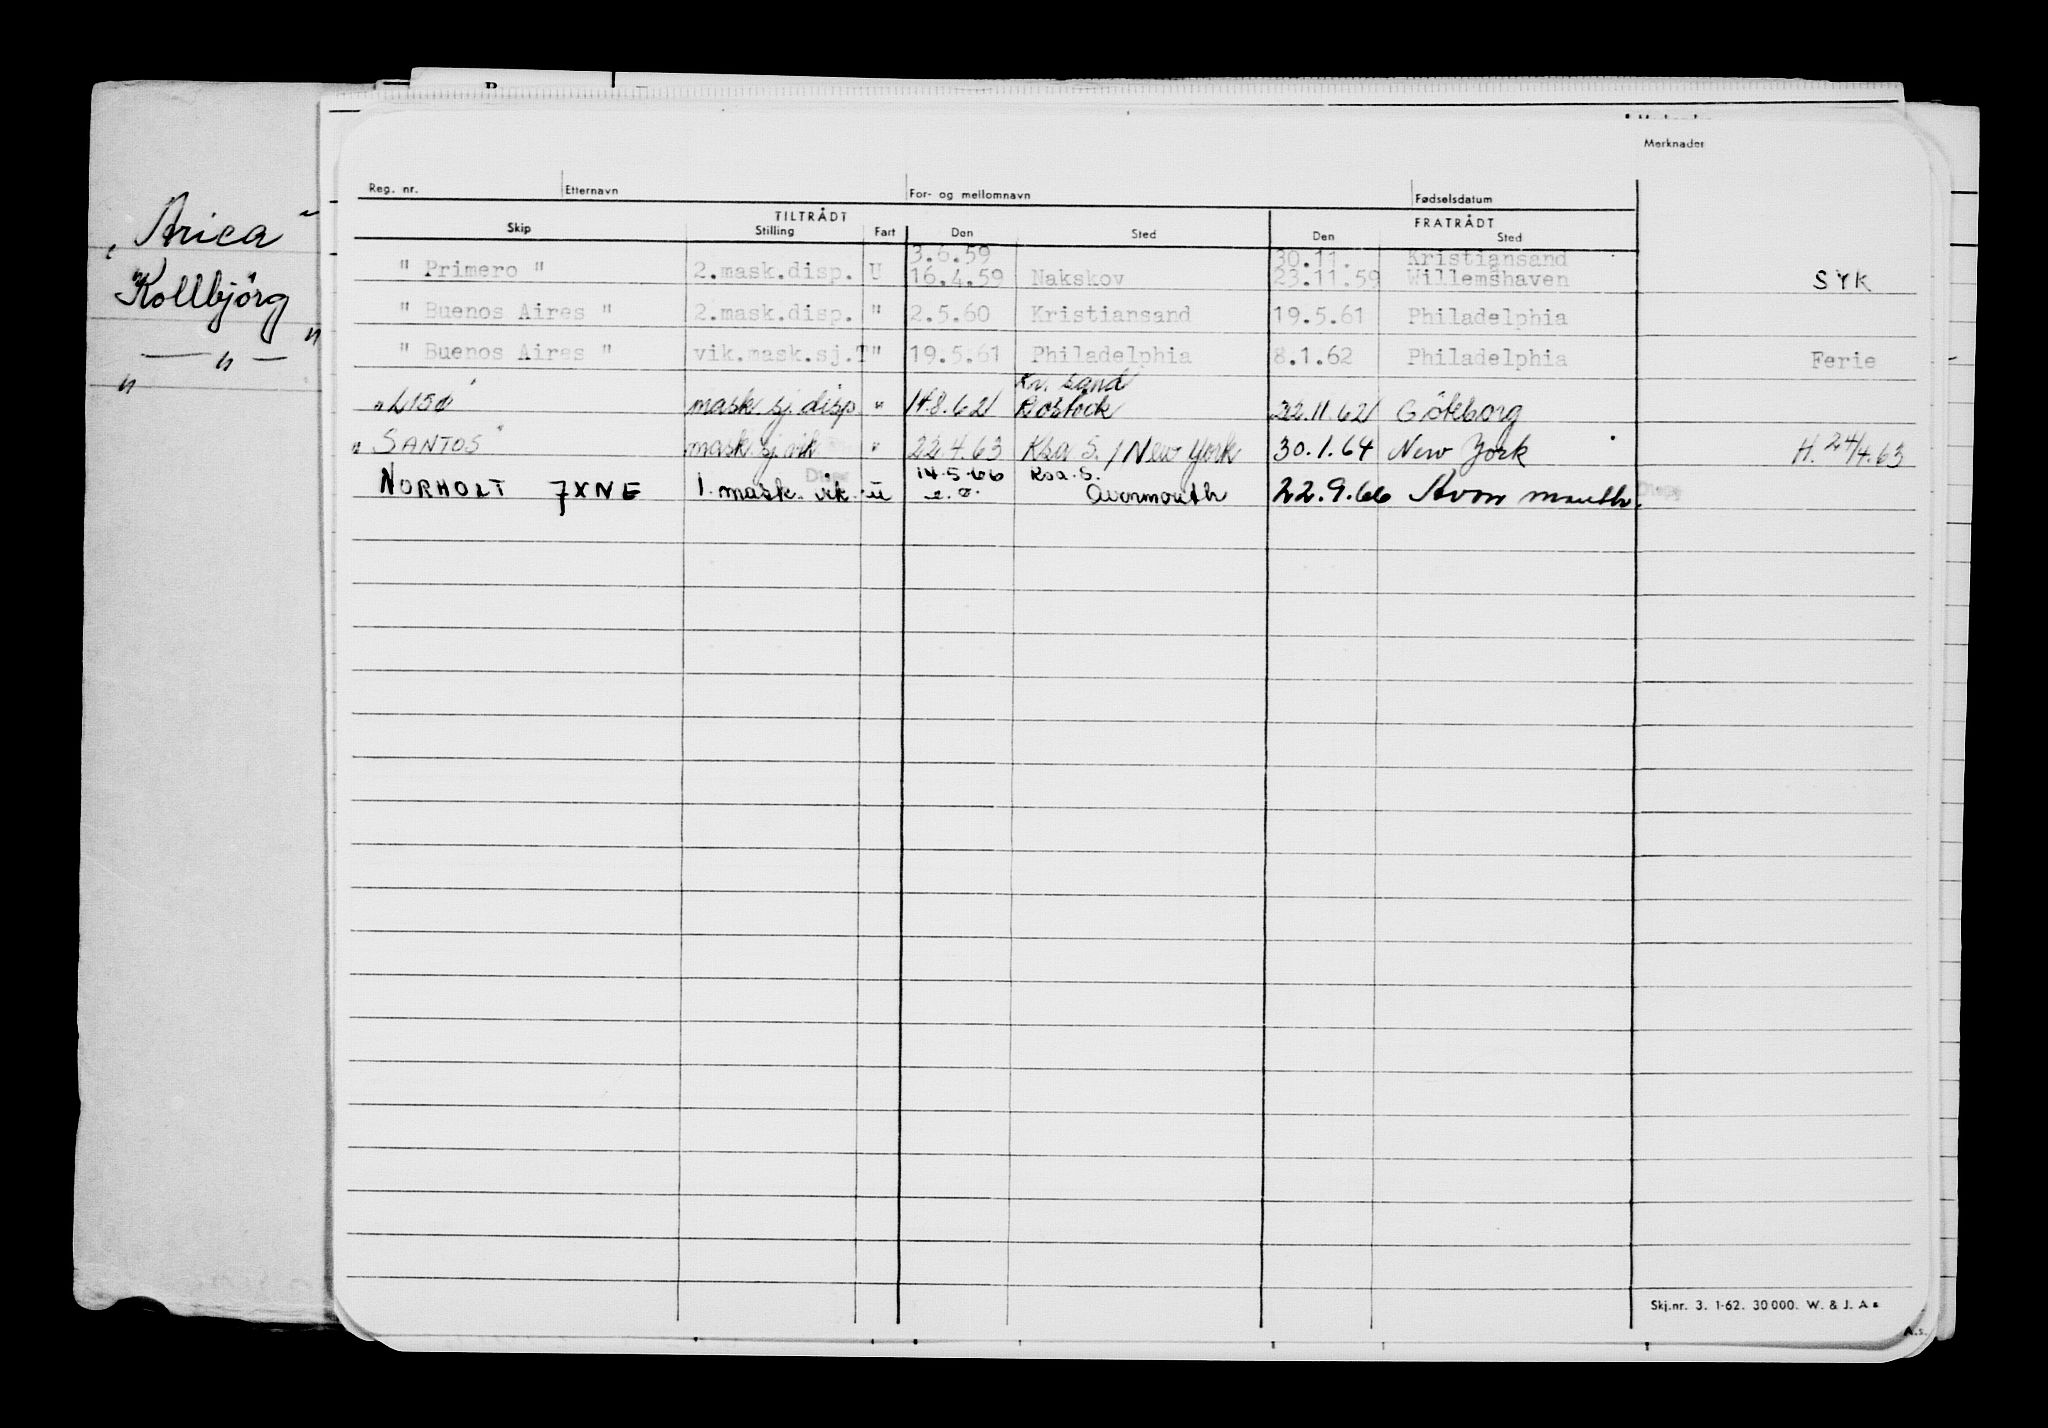 „Arica"
"Kollbjörg"
— " —
"
Merknader
Reg. nr. Etternavn For- og mellomnavn Fødselsdatum
TILTRÅDT FRATRÅDT
Skip Stilling Fart Den Sted Den Sted
3.6.59 30.11. Kristiansand
" Primero " 2.mask.disp. U 16.4.59 Nakskov 23.11.59 Willemshaven SYK
" Buenos Aires " 2.mask.disp. " 2.5.60 Kristiansand 19.5.61 Philadelphia
" Buenos Aires " vik.mask.sj.T " 19.5.61 Philadelphia 8.1.62 Philadelphia Ferie
Kr. sand
mask. sj. disp " 14.8.62 Rostock 22.11.62 Göteborg
"SANTOS" mask. sj. vik " 22.4.63 Ksa S. / New York 30.1.64 New York H. 24/4.63
14.5.66 Ksa. S.
NORHOLT JXNE 1. mask. vik. u Avonmouth 22.9.66 Avonmouth.
Skj.nr. 3. 1-62. 30 000. W. & J. A s
A.s.